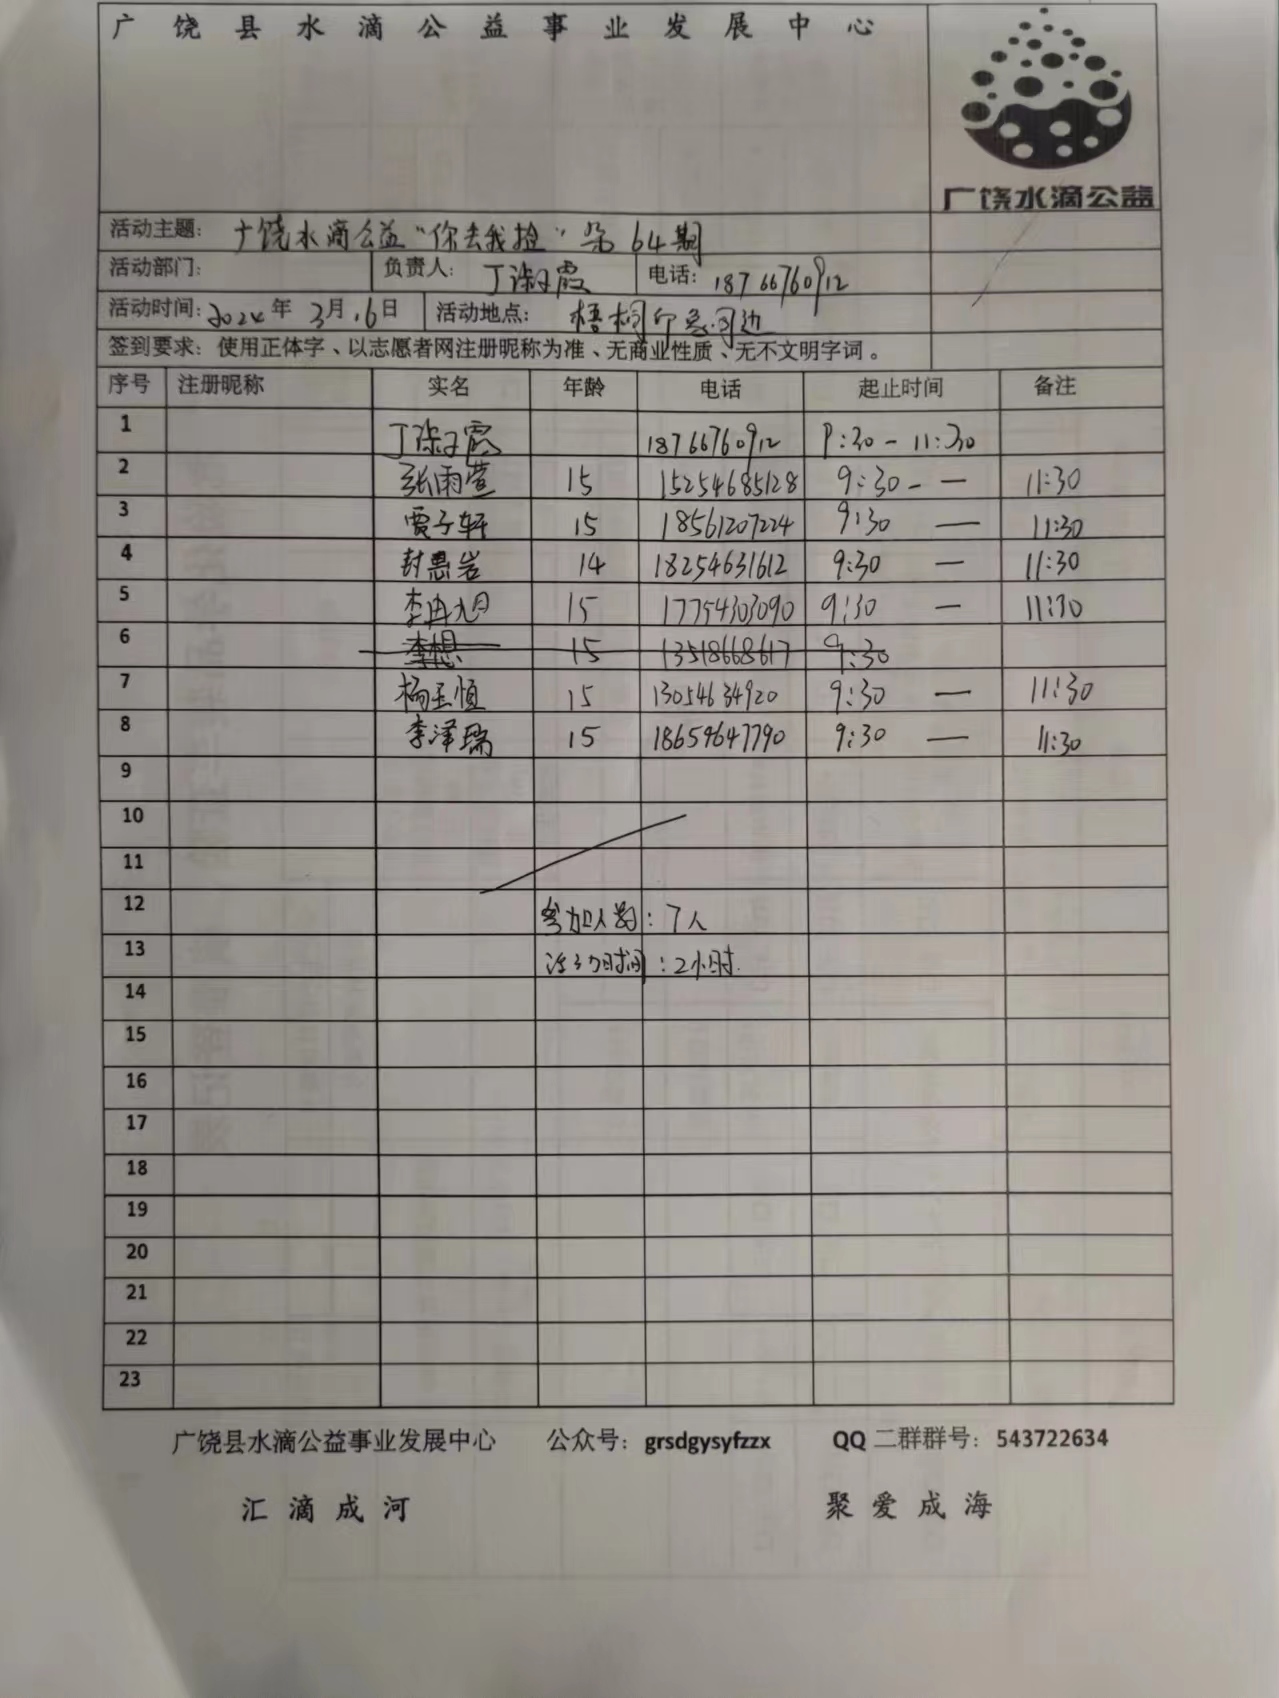 广饶县水滴公益事业发展中心
广饶水滴公益
活动主题: 广饶水滴公益“你去我捡” 第64期
活动部门: 负责人: 丁 霞 电话: 18766760912
活动时间: 2024年 3月16日 活动地点: 梧桐印象河边
签到要求: 使用正体字、以志愿者网注册昵称为准、无商业性质、无不文明字词。
序号 注册昵称 实名 年龄 电话 起止时间 备注
1 丁 霞 18766760912 9:30 - 11:30
2 张雨萱 15 15254685128 9:30 - — 11:30
3 贾子轩 15 18561207224 9:30 — 11:30
4 封惠岩 14 18254631612 9:30 — 11:30
5 李冉旭 15 17754303090 9:30 — 11:30
6 李想 15 13518668617 9:30
7 杨玉恒 15 13054634920 9:30 — 11:30
8 李泽瑞 15 18659647790 9:30 — 11:30
9
10
11
12 参加人数: 7人
13 活动时间: 2小时.
14
15
16
17
18
19
20
21
22
23
广饶县水滴公益事业发展中心 公众号: grsdgysyfzzx QQ 二群群号: 543722634
汇滴成河 聚爱成海